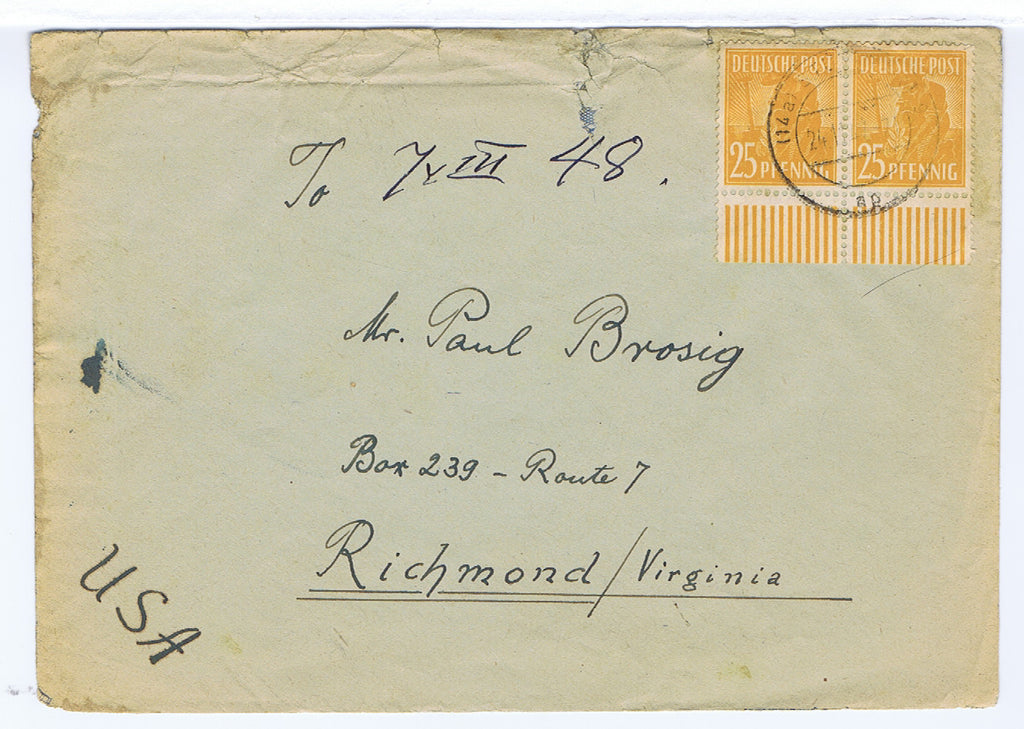 DEUTSCHE POST DEUTSCHE POST
25 PFENNIG 25 PFENNIG
(14a)
24
To 7 III 48.
Mr. Paul Brosig
Box 239 - Route 7
Richmond/Virginia
USA